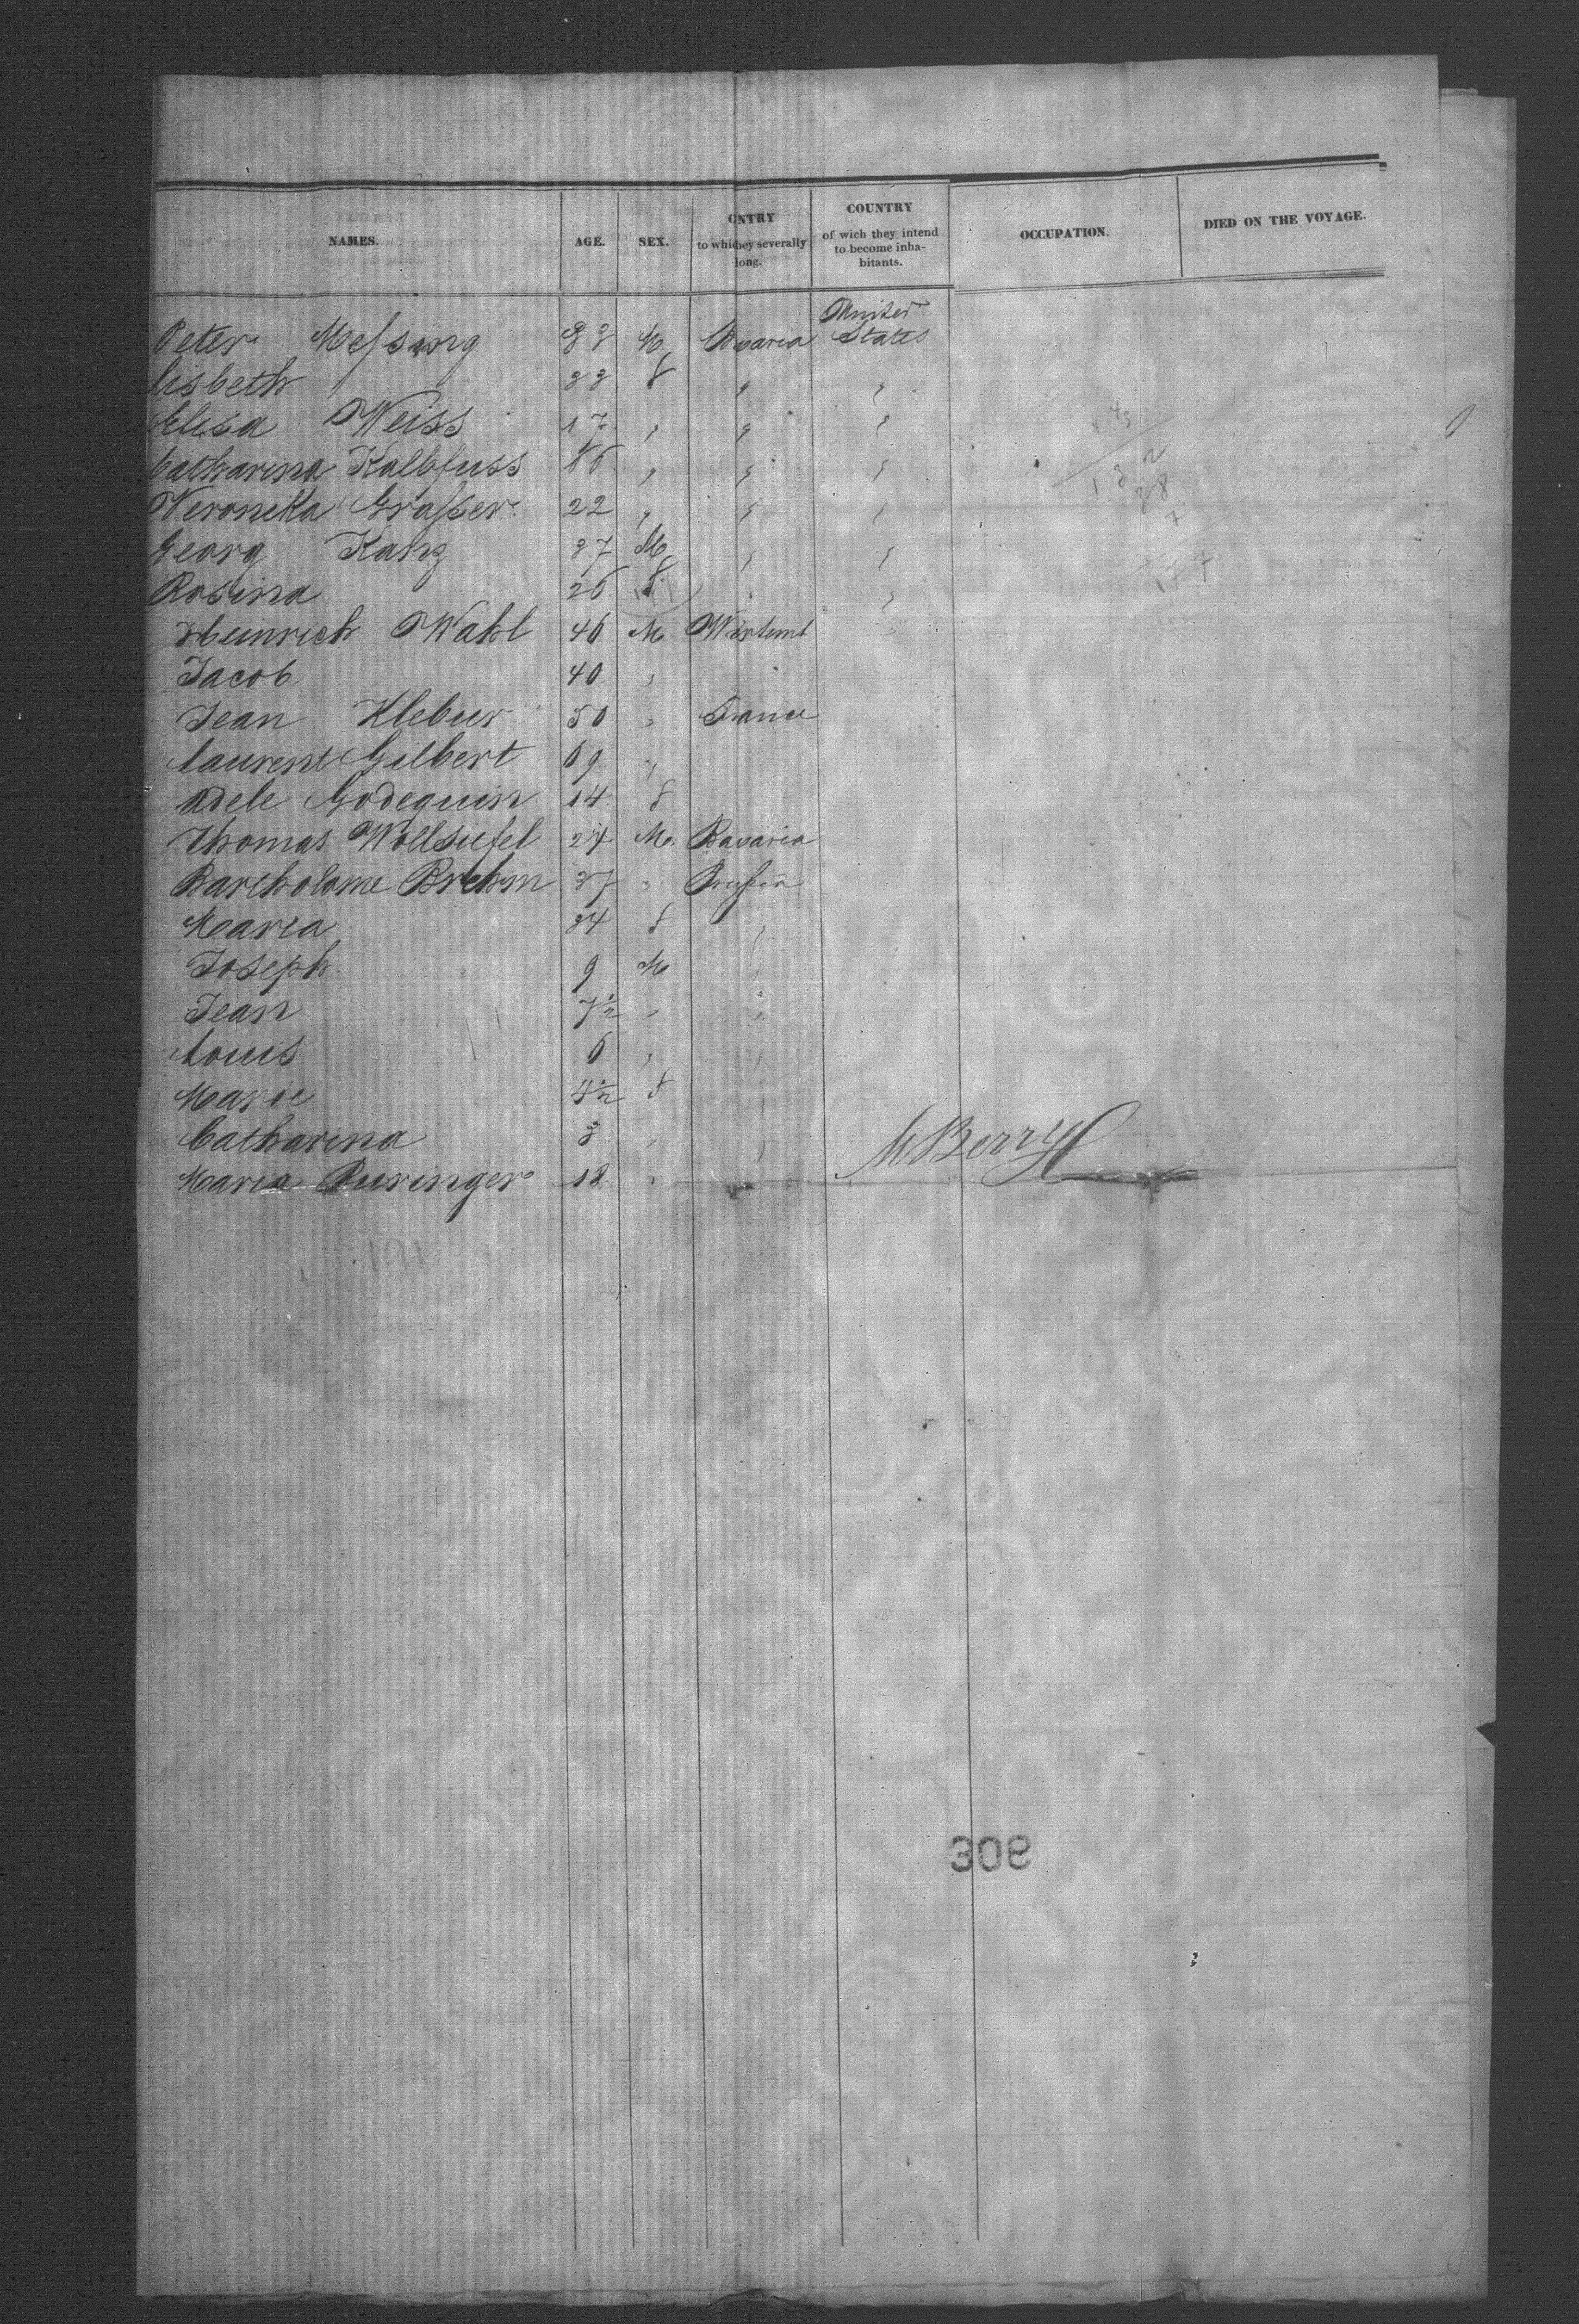 NAMES. AGE. SEX. CNTRY to whichey severally long. COUNTRY of wich they intend to become inha-bitants. OCCUPATION. DIED ON THE VOYAGE.
United
Peter Messing 33 M Bvaria States
Lisbeth 33 f " "
Elisa Weiss 17 " " "
Catharina Kalbfuss 66 " " "
Veronika Grasser 22 " " "
Georg Kanz 37 M " "
Rosina 26 f " "
Heinrich Wahl 46 M Würtemb "
Jacob 40 " "
Jean Klebur 50 " France
Laurent Gilbert 69 "
Adele Godequin 14 f
Thomas Wollsiefel 27 M. Bavaria
Bartholome Brehm 37 " Prussia
Maria 34 f "
Joseph 9 M "
Jean 7½ " "
Louis 6 " "
Marie 4½ f "
Catharina 3 " "
Maria Puringer 18 "
M Berry
191
308